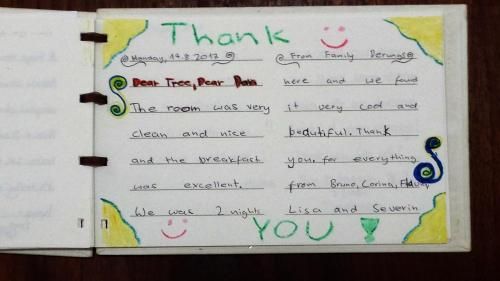 Thank
Monday, 14.8.2017
Dear Tree, Dear Dara
The room was very
clean and nice
and the breakfast
was excellent.
We was 2 nights
From Family Derungs
here and we found
it very cool and
beautiful. Thank
you for everything
from Bruno, Corina, Flavia,
Lisa and Severin
YOU